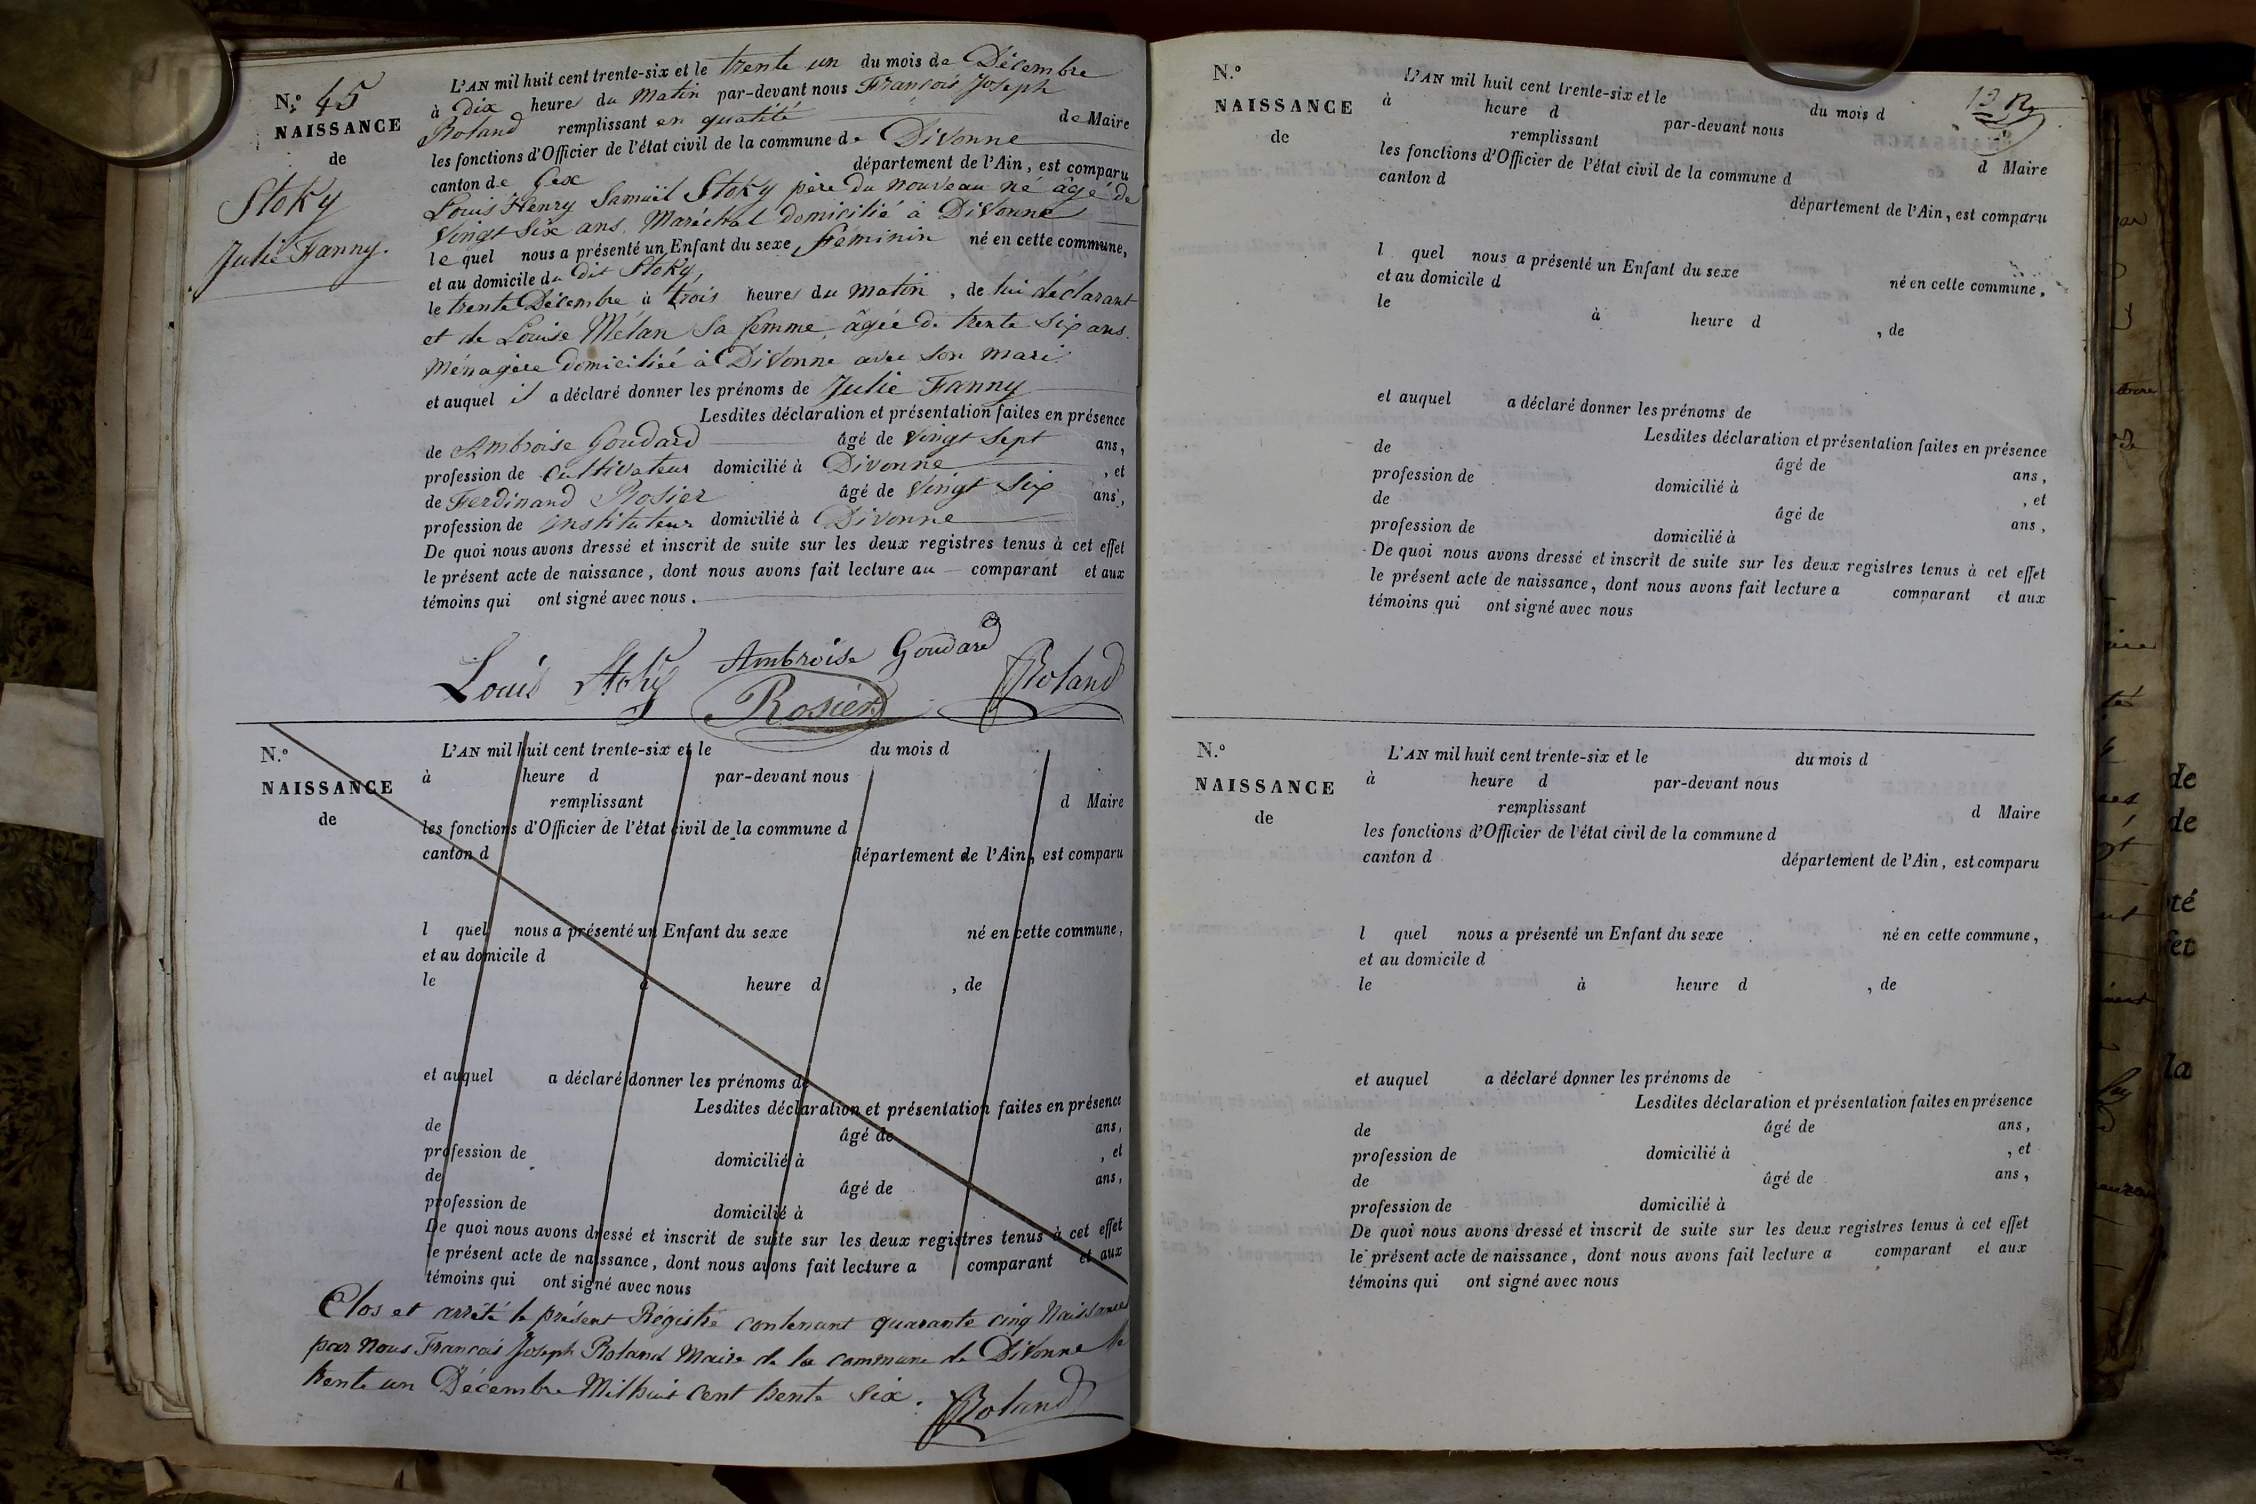 N.º 45
NAISSANCE
de
Stoky
Julie Fanny.
L'AN mil huit cent trente-six et le trente un du mois de Décembre
à Dix heures du matin par-devant nous François Joseph
Roland remplissant en qualité de Maire
les fonctions d'Officier de l'état civil de la commune de Divonne
canton de Gex département de l'Ain, est comparu
Louis Henry Samuël Stoky père du nouveau né âgé de
vingt six ans. Maréchal domicilié à Divonne
lequel nous a présenté un Enfant du sexe féminin né en cette commune,
et au domicile du dit Stoky,
le trente Décembre à trois heures du matin, de lui déclarant
et de Louise Mélan sa femme, âgée de trente six ans.
Ménagère domiciliée à Divonne avec son mari.
et auquel il a déclaré donner les prénoms de Julie Fanny
Lesdites déclaration et présentation faites en présence
de Ambroise Goudard âgé de vingt sept ans,
profession de cultivateur domicilié à Divonne, et
de Ferdinand Rosier âgé de vingt six ans,
profession de instituteur domicilié à Divonne
De quoi nous avons dressé et inscrit de suite sur les deux registres tenus à cet effet
le présent acte de naissance, dont nous avons fait lecture au comparant et aux
témoins qui ont signé avec nous.
Louis Stoky Ambroise Goudard Roland
Rosier
N.º
NAISSANCE
de
L'AN mil huit cent trente-six et le du mois d
à heure d par-devant nous
remplissant d Maire
les fonctions d'Officier de l'état civil de la commune d
canton d département de l'Ain, est comparu
l quel nous a présenté un Enfant du sexe né en cette commune,
et au domicile d
le à heure d , de
et auquel a déclaré donner les prénoms de
Lesdites déclaration et présentation faites en présence
de âgé de ans,
profession de domicilié à , et
de âgé de ans,
profession de domicilié à
De quoi nous avons dressé et inscrit de suite sur les deux registres tenus à cet effet
le présent acte de naissance, dont nous avons fait lecture a comparant et aux
témoins qui ont signé avec nous
Clos et arrêté le présent Régistre contenant quarante cinq Naissances
par nous François Joseph Roland Maire de la commune de Divonne le
trente un Décembre Mil huit cent trente six. Roland
N.º
NAISSANCE
de
L'AN mil huit cent trente-six et le du mois d
à heure d par-devant nous
remplissant d Maire
les fonctions d'Officier de l'état civil de la commune d
canton d département de l'Ain, est comparu
l quel nous a présenté un Enfant du sexe né en cette commune,
et au domicile d
le à heure d , de
et auquel a déclaré donner les prénoms de
Lesdites déclaration et présentation faites en présence
de âgé de ans,
profession de domicilié à , et
de âgé de ans,
profession de domicilié à
De quoi nous avons dressé et inscrit de suite sur les deux registres tenus à cet effet
le présent acte de naissance, dont nous avons fait lecture a comparant et aux
témoins qui ont signé avec nous
N.º
NAISSANCE
de
L'AN mil huit cent trente-six et le du mois d
à heure d par-devant nous
remplissant d Maire
les fonctions d'Officier de l'état civil de la commune d
canton d département de l'Ain, est comparu
l quel nous a présenté un Enfant du sexe né en cette commune,
et au domicile d
le à heure d , de
et auquel a déclaré donner les prénoms de
Lesdites déclaration et présentation faites en présence
de âgé de ans,
profession de domicilié à , et
de âgé de ans,
profession de domicilié à
De quoi nous avons dressé et inscrit de suite sur les deux registres tenus à cet effet
le présent acte de naissance, dont nous avons fait lecture a comparant et aux
témoins qui ont signé avec nous
de
de
té
fet
la